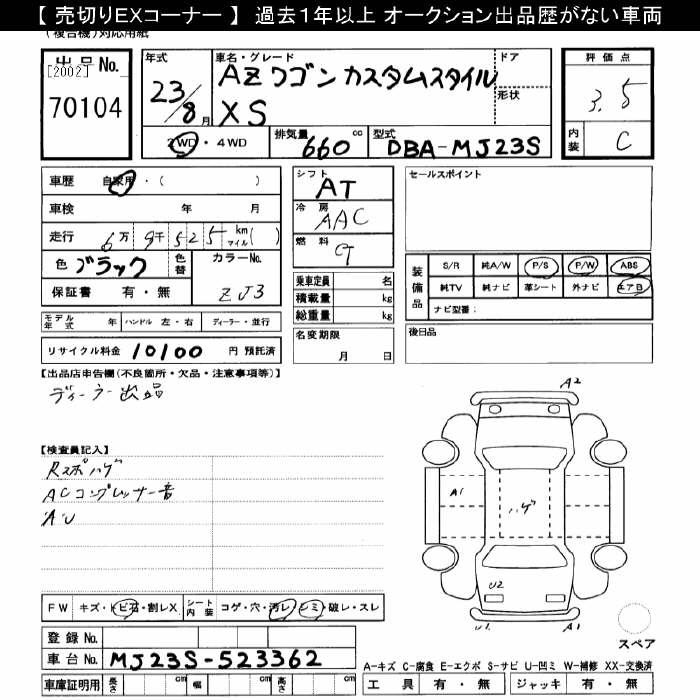 【 売切りEXコーナー 】 過去1年以上 オークション出品歴がない車両
(複合機)対応用紙
出品No.
[2002]
70104
年式
23/8月
2WD・4WD
車名・グレード
AZワゴン カスタムスタイル
XS
ドア
形状
排気量 660 cc
型式 DBA-MJ23S
評価点
3.5
内装 C
車歴 自家用・( )
車検 年 月
走行 6万9千525 km マイル( )
色 ブラック
色替
カラーNo.
ZJ3
保証書 有・無
モデル年式 年 ハンドル 左・右 ディーラー・並行
リサイクル料金 10100 円 預託済
シフト
AT
冷房
AAC
燃料
G
乗車定員 名
積載量 kg
総重量 kg
名変期限
月 日
セールスポイント
装備品
S/R 純A/W P/S P/W ABS
純TV 純ナビ 革シート 外ナビ エアB
ナビ型番:
後日品
【出品店申告欄(不良箇所・欠品・注意事項等)】
ディーラー出品
【検査員記入】
Rスポハゲ
ACコンプレッサー音
AU
A2
A1
ハゲ
U2
U1
A1
スペア
FW キズ・トビ石・割レX
シート内装 コゲ・穴・汚レ・シミ・破レ・スレ
登録No.
車台No. MJ23S-523362
車庫証明用 長さ cm 幅 cm 高さ cm
A-キズ C-腐食 E-エクボ S-サビ U-凹ミ W-補修 XX-交換済
工具 有・無 ジャッキ 有・無